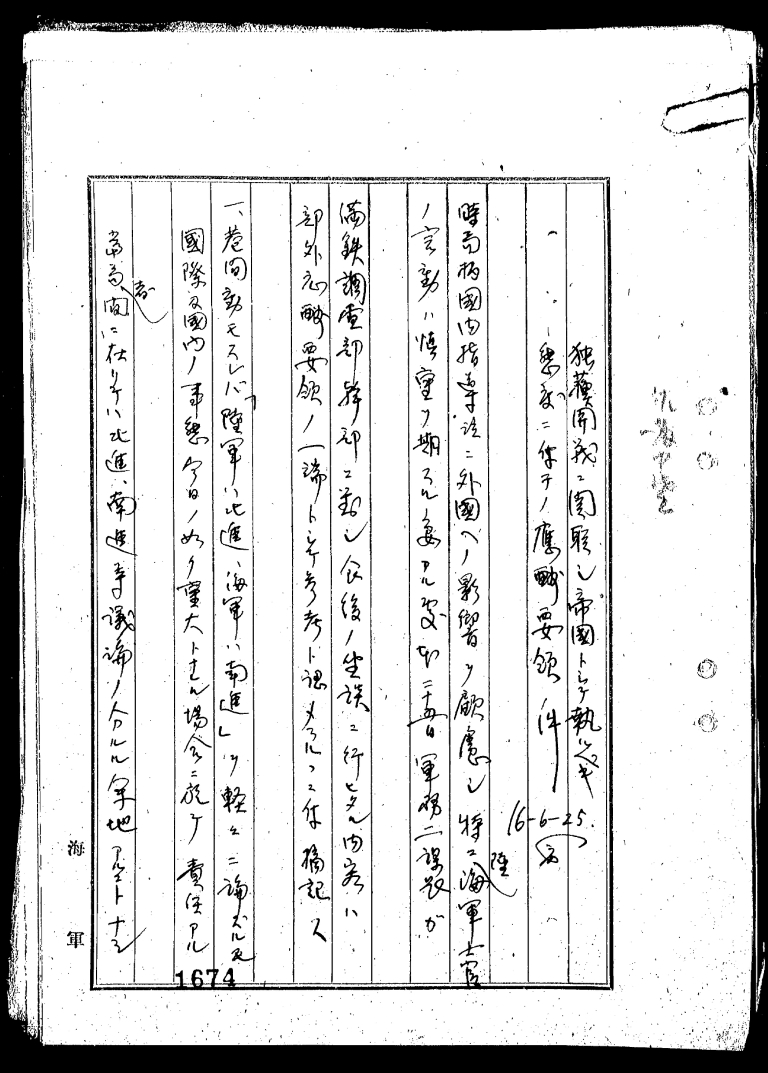 独蘇開戦ニ関聯シ帝国トシテ執ルベキ
態度ニ付テノ應酬要領ノ件
16-6-25.
時局柄國内指導竝ニ外國ヘノ影響ヲ顧慮シ特ニ陸海軍士官
ノ言動ハ慎重ヲ期スルノ要アル處本二十五日軍務二課長ガ
満鉄調査部幹部ニ對シ食後ノ坐談ニ行ヒタル内容ハ
部外応酬要領ノ一端トシテ参考ト認メラルルニ付摘記ス
一、巷間動モスレバ「陸軍ハ北進、海軍ハ南進」ヲ軽々ニ論ズルモ
國際及國内ノ事態今日ノ如ク重大トナレル場合ニ於テ責任アル
当局者間ニ在リテハ北進、南進等議論ノ分ルル余地アルコトナシ
海軍
1674